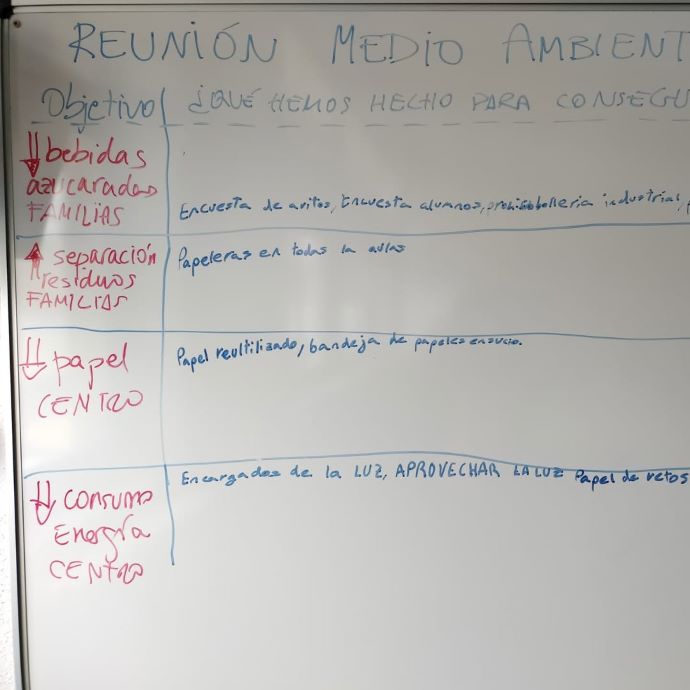 REUNIÓN MEDIO AMBIENT
Objetivo ¿QUÉ HEMOS HECHO PARA CONSEGU
↓ bebidas
azucaradas
FAMILIAS
Encuesta de avitos, Encuesta alumnos, industrial,
↑ separación
residuos
FAMILIAS
Papeleras en todas la aulas
↓ papel
CENTRO
Papel reultilizado, bandeja de papeles ensucio.
↓ consumo
Energía
CENTRO
Encargados de la LUZ, APROVECHAR LA LUZ Papel de retos